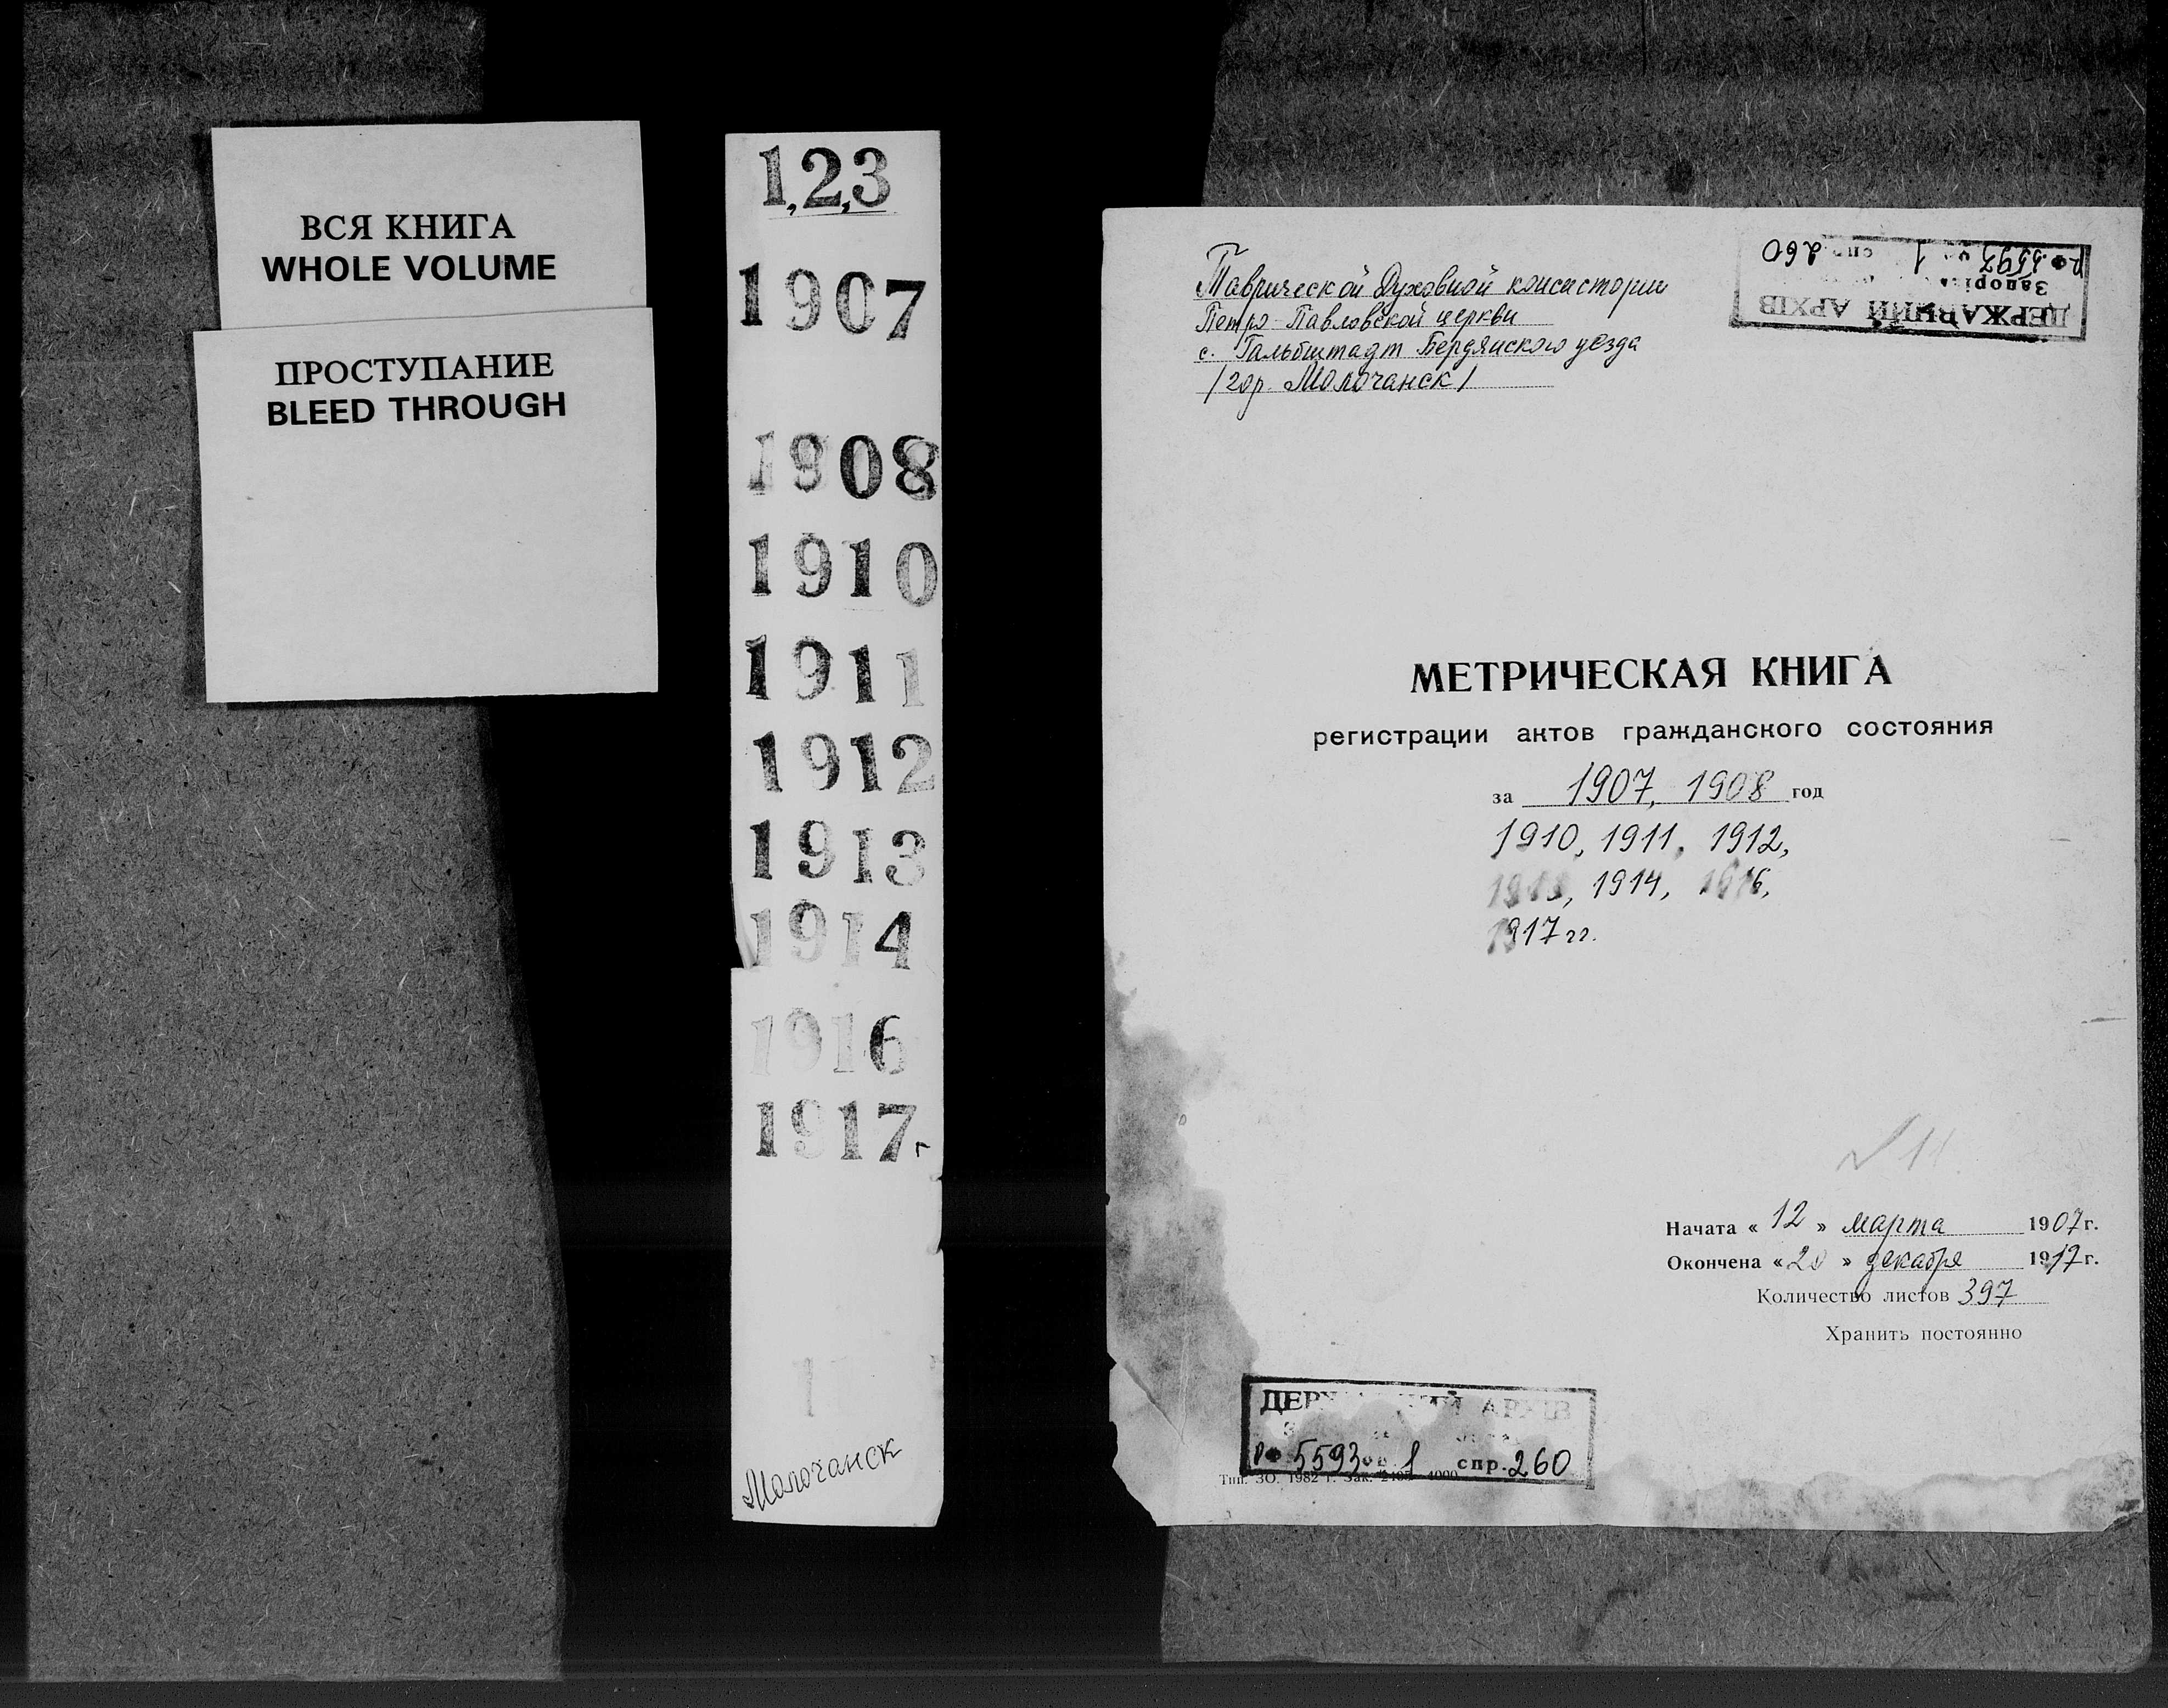 ВСЯ КНИГА
WHOLE VOLUME
ПРОСТУПАНИЕ
BLEED THROUGH
1,2,3
1907
1908
1910
1911
1912
1913
1914
1916
1917г
Молочанск
Таврической Духовной консистории
Петро-Павловской церкви
с. Гальбштадт Бердянского уезда
/гор. Молочанск/
ДЕРЖАВНИЙ АРХІВ
Р-Ф. 5593 1 спр. 260
МЕТРИЧЕСКАЯ КНИГА
регистрации актов гражданского состояния
за 1907, 1908 год
1910, 1911, 1912,
1913, 1914, 1916,
1917 гг.
Начата « 12 » марта 1907 г.
Окончена « 20 » декабря 1917 г.
Количество листов 397
Хранить постоянно
ДЕРЖАВНИЙ АРХІВ
Р-Ф 5593 оп. 1 спр. 260
Тип. ЗО. 1982 г. Зак. 4000